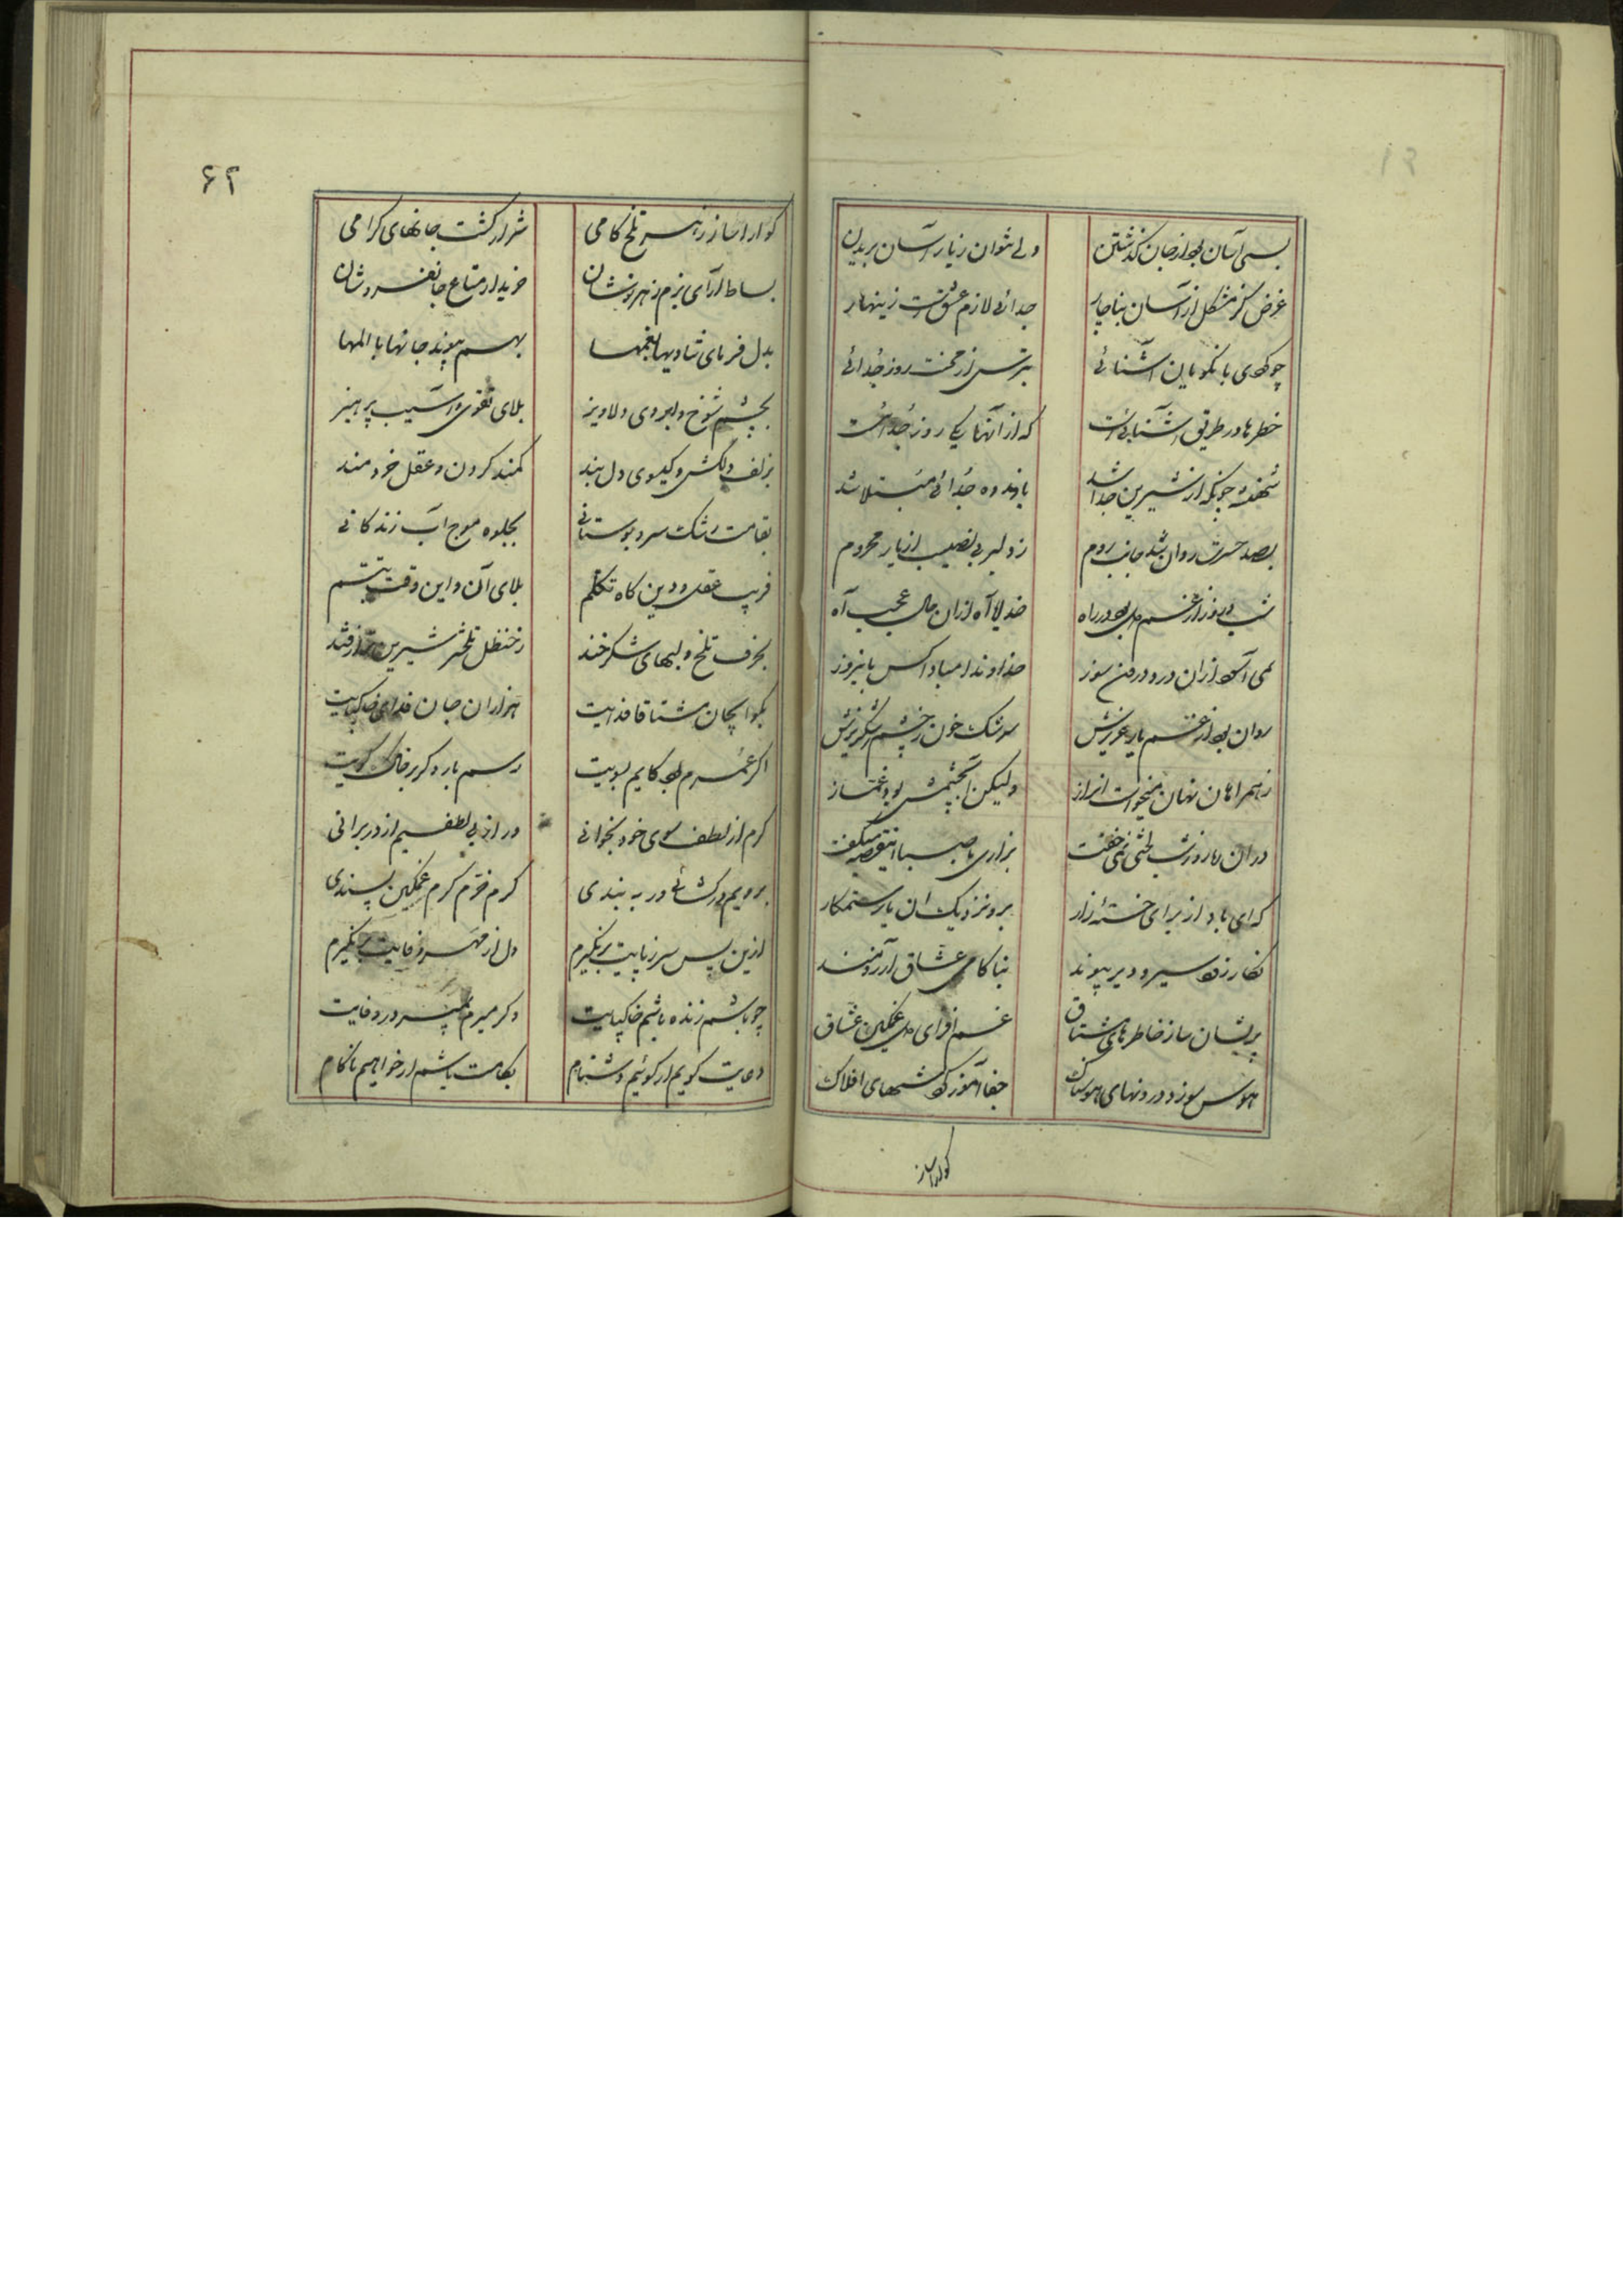 بسی آسان بود از جان گذشتن ولی نتوان ز یار آسان بریدن
غرض گر مشکل ار آسان بناچار جدائی لازم عشقست زینهار
چو کردی با نکویان آشنائی بترس از محنت روز جدائی
خطرها در طریق آشنائیست که از آنها یکی روز جدائیست
شهنشه چونکه از شیرین جدا شد باندوه جدائی مبتلا شد
بصد حسرت روان شد جانب روم ز دلبر بی نصیب از یار محروم
شب و روز از غم دل بود در راه خدایا آه از آن حال عجب آه
نمی آسود از آن درد درون سوز خداوندا مبادا کس باینروز
روان بود از غم یار عزیزش سرشک خون ز چشم اشکریزش
ز همراهان نهان میخواست این راز ولیکن آب چشمش بود غماز
در آن ره روز و شب لختی نمی خفت بزاری با صبا این قصه میگفت
که ای باد از برای خسته زار برو نزدیک آن یار ستمکار
نگار زود سیر و دیر پیوند بناکامی عشاق آرزومند
پریشان ساز خاطرهای مشتاق غم افزای دل غمگین عشاق
هوس سوز درونهای هوسناک جفا آموز کوششهای افلاک
گوارا ساز
۶۲
گوارا ساز زهر تلخ کامی شرار کشت جانهای گرامی
بساط آرای بزم زهرنوشان خریدار متاع جانفروشان
بدل فرمای شادیها بغمها بهم پیوند جانها با المها
بچشم شوخ و ابروی دلاویز بلای تقوی و آسیب پرهیز
بزلف دلکش و گیسوی دل بند کمند گردن و عقل خردمند
بقامت رشک سرو بوستانی بجلوه موج آب زندگانی
فریب عقل و دین گاه تکلم بلای آن و این وقت تبسم
بحرف تلخ و لبهای شکرخند ز حنظل تلختر شیرین تر از قند
بگو ایجان مشتاقان فدایت هزاران جان فدای خاکپایت
اگر عمرم بود کایم بسویت رسم بار دگر بر خاک کویت
گرم از لطف سوی خود بخوانی ور از بی لطفیم از در برانی
برویم در گشائی ور به بندی گرم خرم گرم غمگین پسندی
ازین پس سر ز پایت برنگیرم دل از مهر و وفایت برنگیرم
چو باشم زنده باشم خاکپایت وگر میرم بمیرم در وفایت
دعایت گویم ار گوئیم دشنام بکامت باشم ار خواهیم ناکام